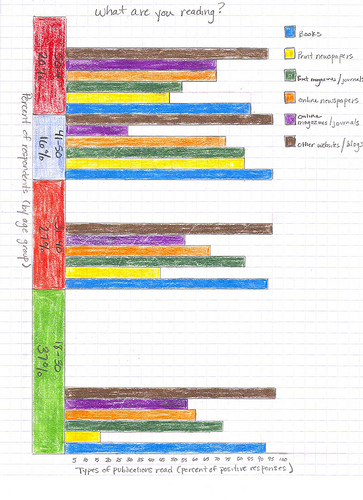 What are you reading?
Books
Print newspapers
Print magazines/journals
online newspapers
online
magazines/journals
Other website/blogs
Percent of respondents (by age group)
41-50
16%
18-30
37%
5 10 15 20 25 30 35 40 45 50 55 60 65 70 75 80 85 90 95 100
Types of publications read (percent of positive responses)